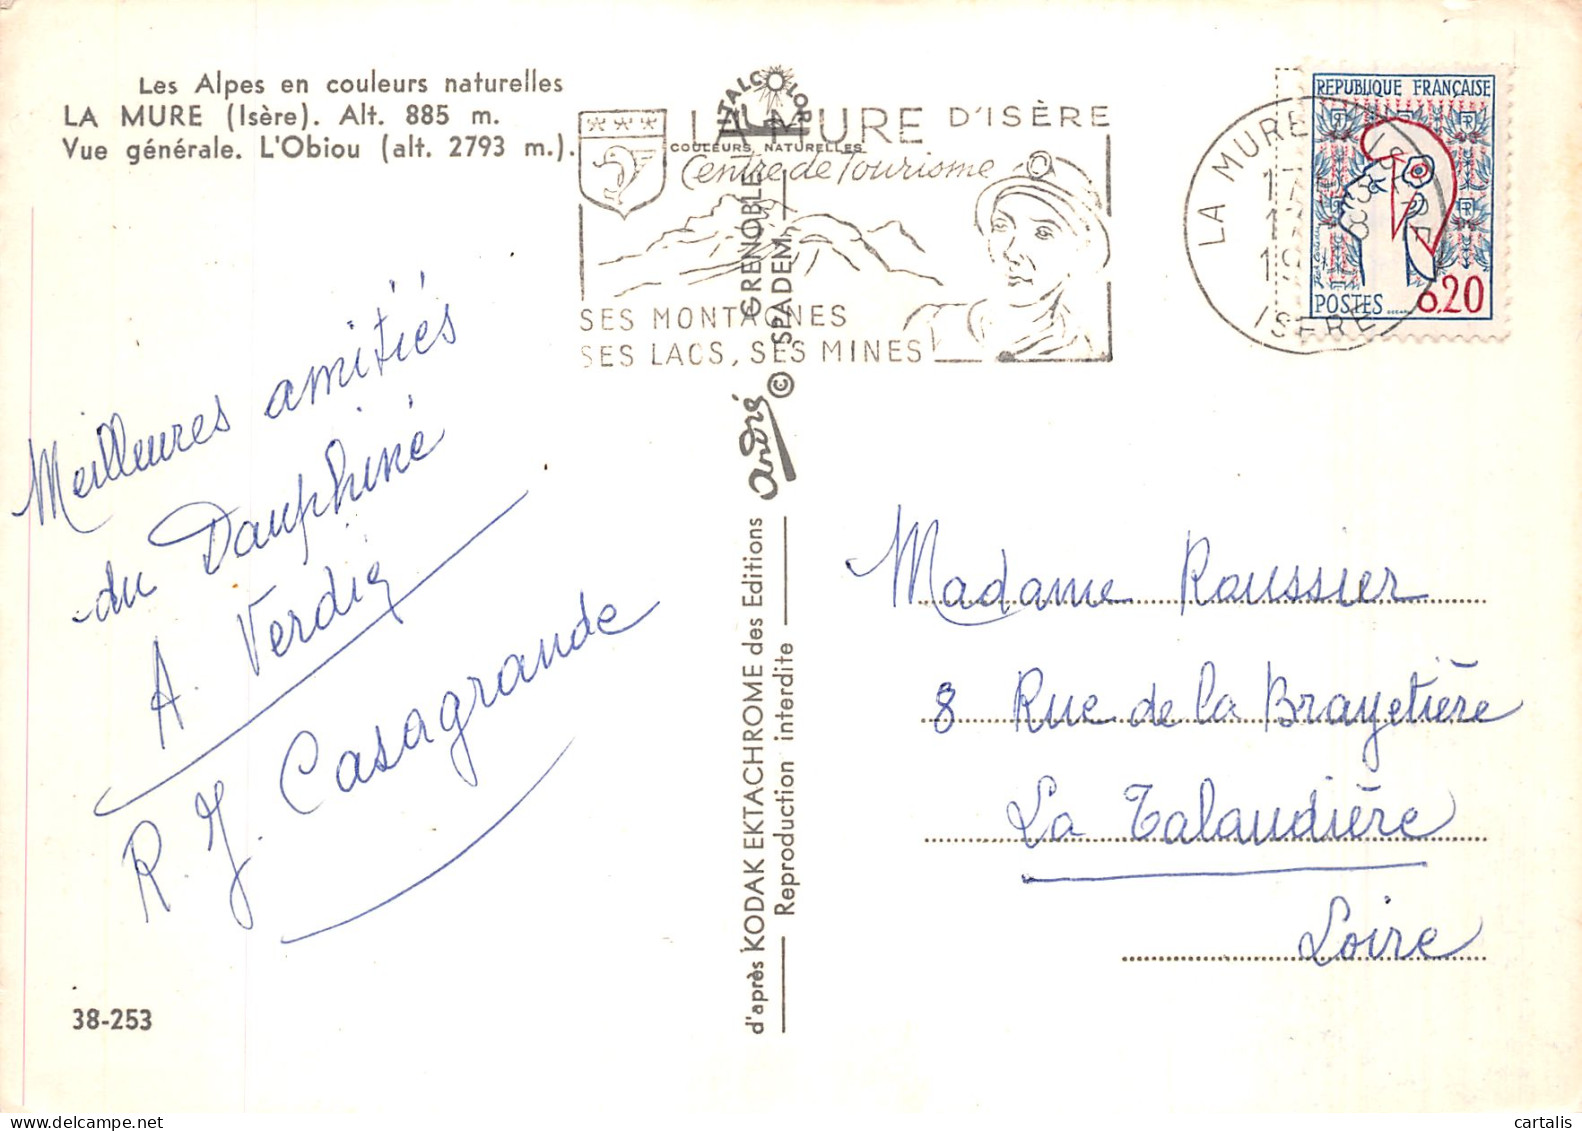 Les Alpes en couleurs naturelles
LA MURE (Isère). Alt. 885 m.
Vue générale. L'Obiou (alt. 2793 m.).
ITALCOLOR
COULEURS NATURELLES
LA MURE D'ISÈRE
Centre de Tourisme
SES MONTAGNES
SES LACS, SES MINES
LA MURE
ISERE
REPUBLIQUE FRANÇAISE
POSTES 0.20
Meilleures amitiés
du Dauphiné
A. Verdie
R. J. Casagrande
38-253
GRENOBLE
© SPADEM
André
d'après KODAK EKTACHROME des Editions
Reproduction interdite
Madame Roussier
8 Rue de la Brayetière
La Talaudière
Loire
cartalis